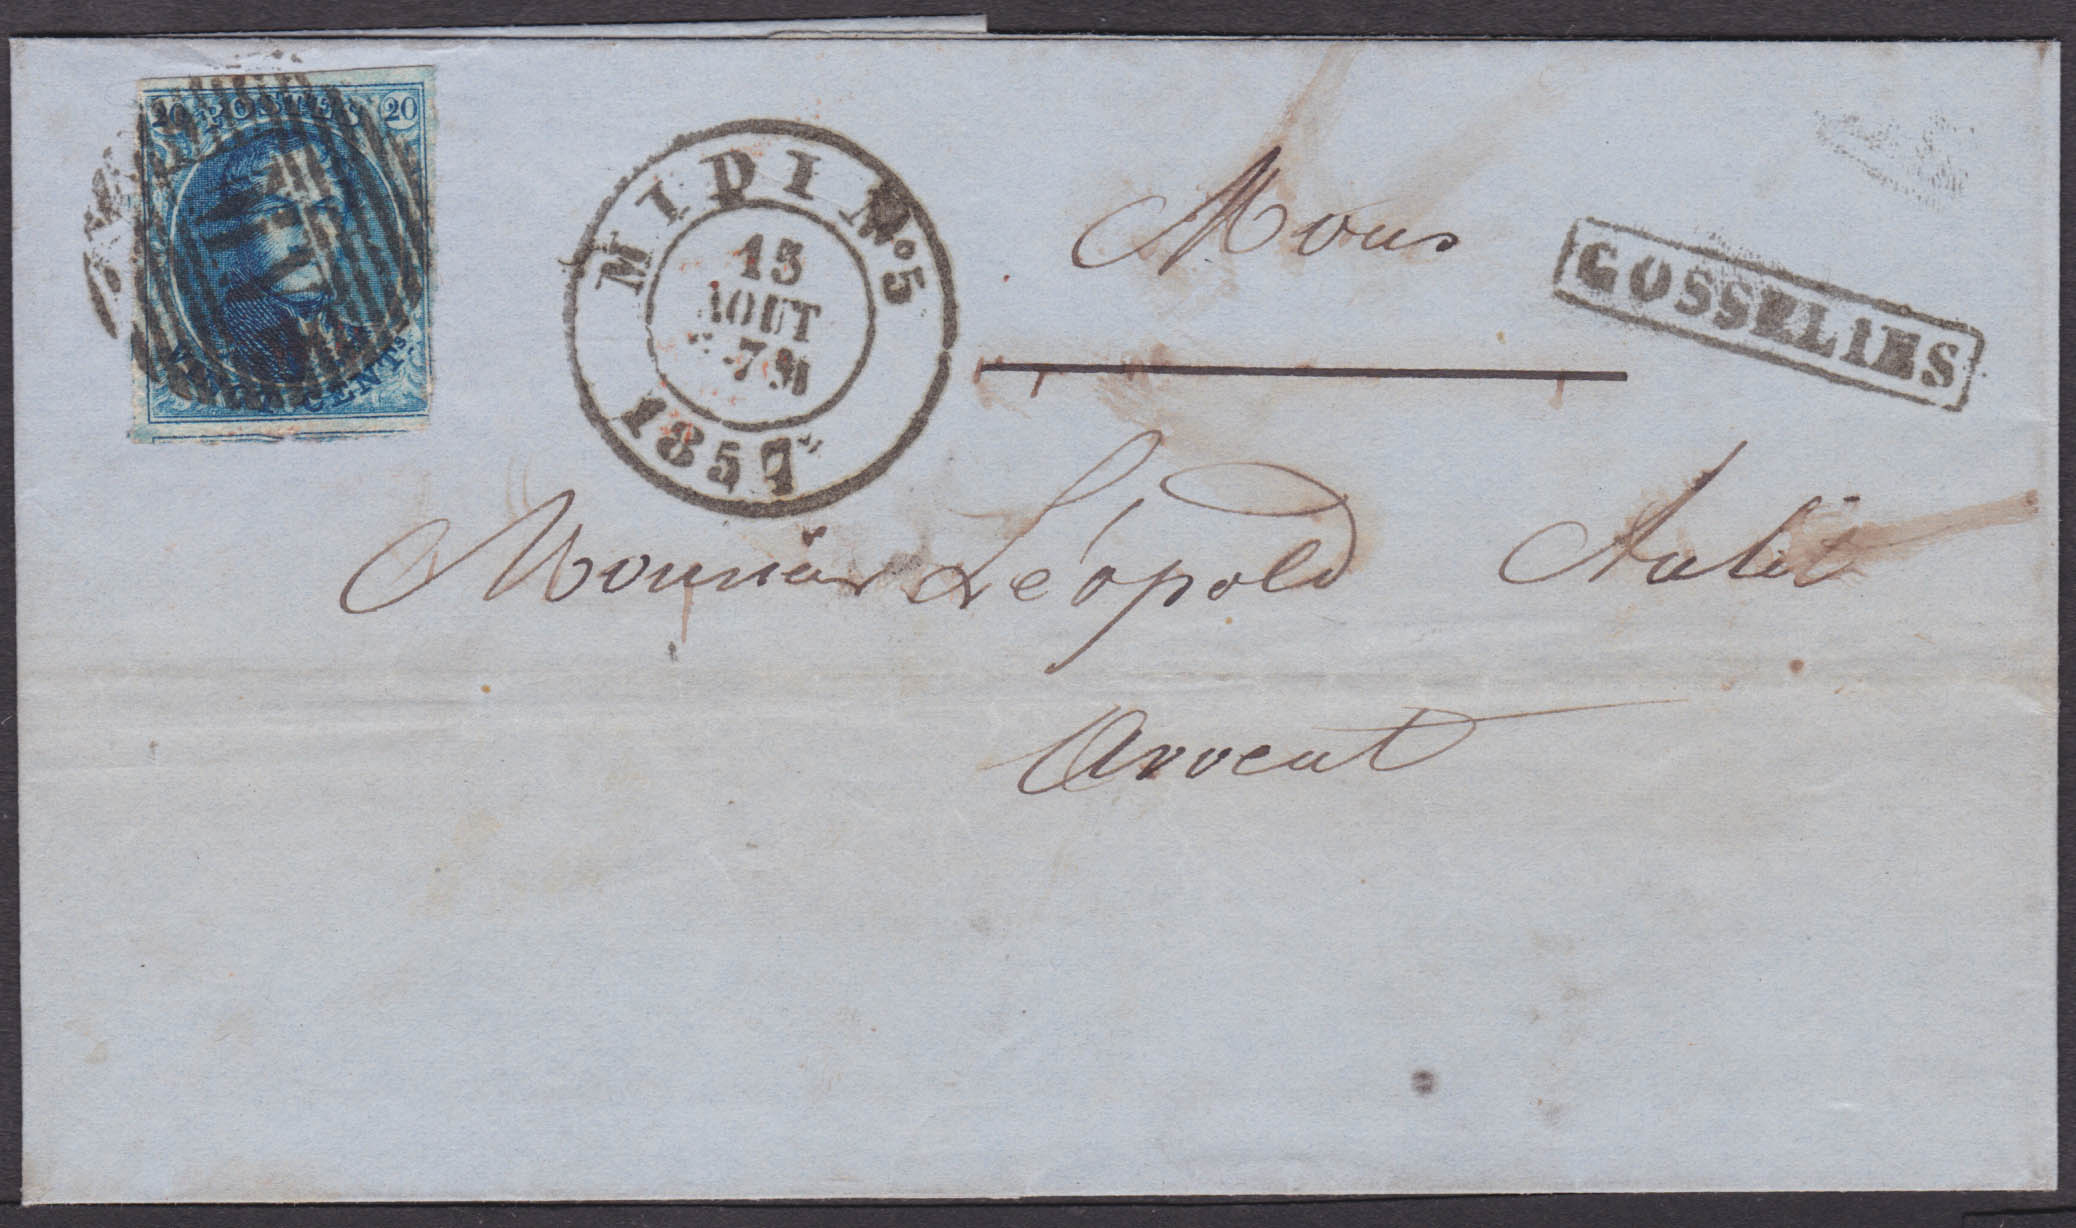 20 POSTES 20
CENTS
MIDI No 5
13
AOUT
7M
1857
GOSSELIES
Mons
Monsieur Léopold
Avocat